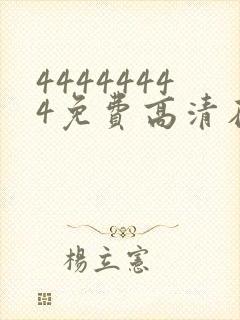 4444444
4免费高清在
楊立憲